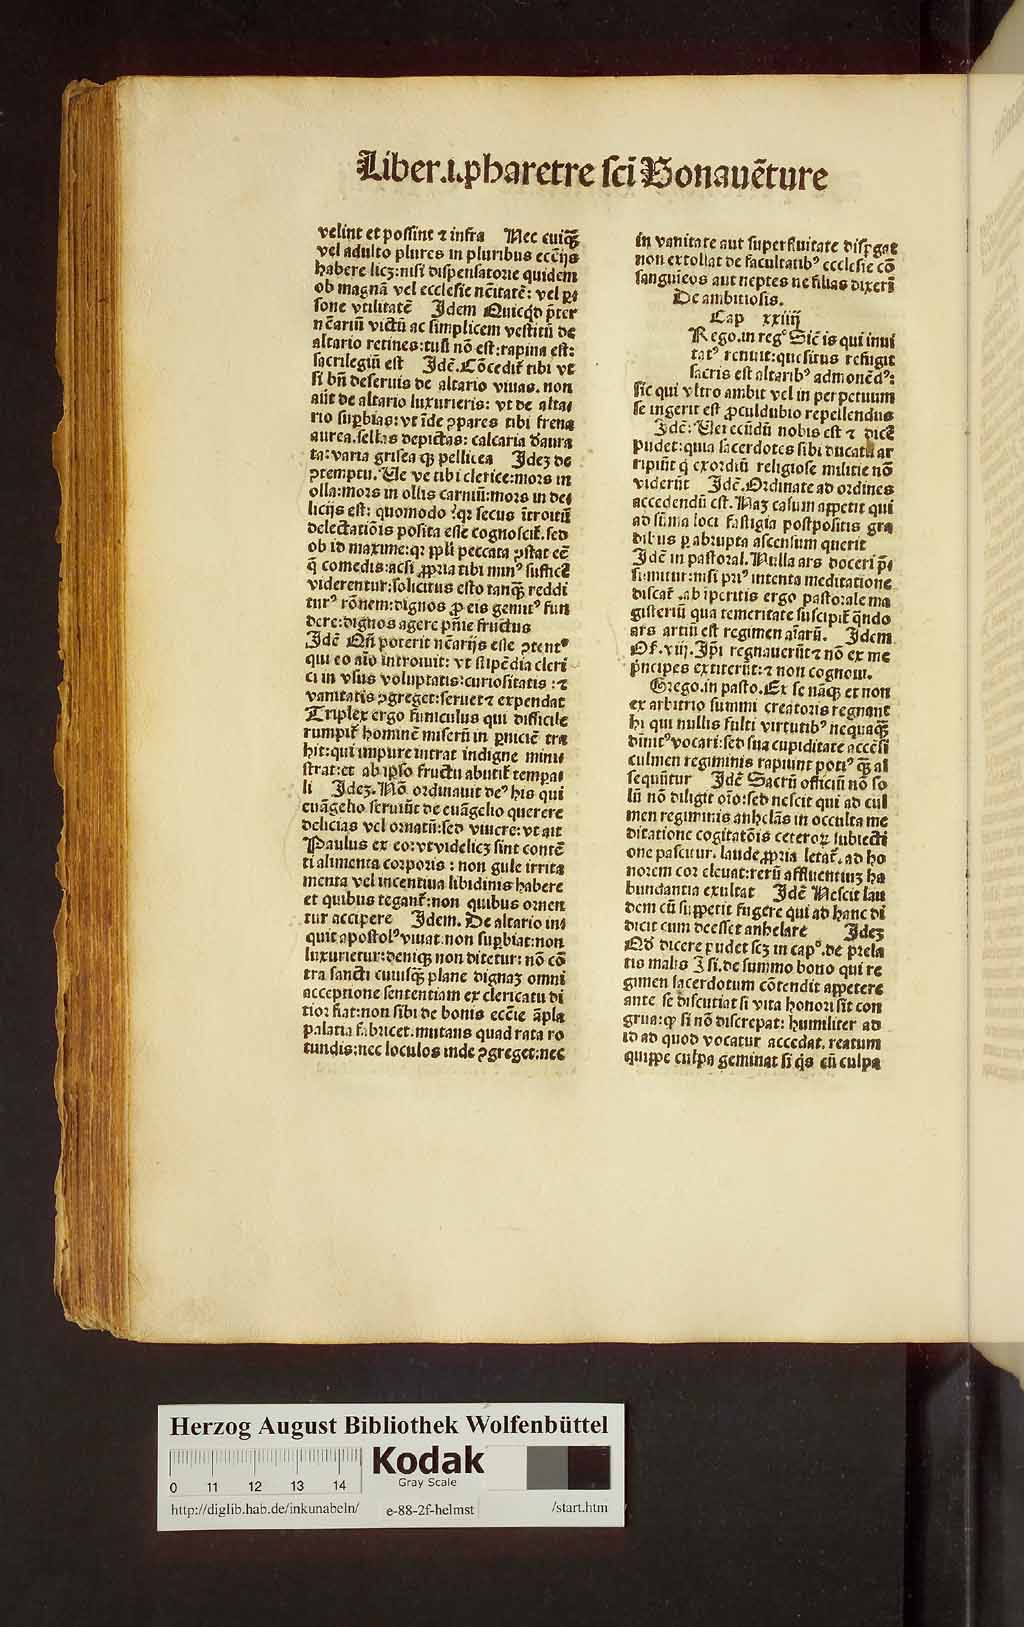 Liber.i.pharetre sci Bonauēture
velint et possint ⁊ infra Nec cuiqꝫ
vel adulto plures in pluribus eccīijs
habere licꝫ:nisi dispensatorie quidem
ob magnā vel ecclesie nēitatē: vel ꝑ
sone vtilitatē Idem Quicqd p̄ter
nēariū victū ac simplicem vestitū de
altario retines:tuū nō est:rapina est:
sacrilegiū est Idē. Cōcedit̄ tibi vt
si bn̄ deseruis de altario viuas. non
aūt de altario luxurieris: vt de alta
rio suꝑbias:vt īde ꝯpares tibi frena
aurea.sellas depictas: calcaria daura
ta:varia grisea qꝫ pellicea Idez de
ꝯtemptu. Ue ve tibi clerice:mors in
olla:mors in ollis carniū:mors in de
licijs est: quomodo ?qꝛ secus ītroitū
delectatiōis posita esse cognoscit̄.sed
ob id maxime:qꝛ ppl̄i peccata ꝯstat eē
q̄ comedis:acsi ꝓpria tibi minꝰ sufficē
viderentur:solicitus esto tanqꝫ reddi
turꝰ rōnem:dignos ꝓ eis gemitꝰ fun
dere:dignos agere pn̄ie fructus
Idē Qn̄ poterit nēarijs esse ꝯtentꝰ
qui eo aīo introiuit: vt stipēdia cleri
ci in vsus voluptatis:curiositatis :⁊
vanitatis ꝯgreget:seruet⁊ expendat
Triplex ergo funiculus qui difficile
rumpit̄ hominē miserū in ꝑniciē tra
hit:qui impure intrat indigne mini
strat:et ab ipso fructu abutit̄ tempa
li Idez. Nō ordinauit deꝰ his qui
euāgelio seruiūt de euāgelio querere
delicias vel ornatū:sed viuere:vt ait
Paulus ex eo:vtvidelicꝫ sint contē
ti alimenta corporis : non gule irrita
menta vel incentiua libidinis habere
et quibus tegant̄:non quibus ornen
tur accipere Idem. De altario in
quit apostolꝰ viuat.non suꝑbiat:non
luxurietur:deniqꝫ non ditetur: nō cō
tra sancti cuiusqꝫ plane dignaꝫ omni
acceptione sententiam ex clericatu di
tior fiat:non sibi de bonis eccīe āpla
palatia fabricet.mutans quadrata ro
tundis:nec loculos inde ꝯgreget:nec
in vanitate aut superfluitate disꝑgat
non extollat de facultatibꝰ ecclesie cō
sanguīeos aut neptes ne filias dixeri
De ambitiosis.
Cap xxiiij
Rego.in regꝰ Sic̄ is qui inui
tatꝰ renuit:quesitus refugit
sacris est altaribꝰ admonēdꝰ:
sic qui vltro ambit vel in perpetuum
se ingerit est ꝓculdubio repellendus
Idē: Uerecūdū nobis est ⁊ dicē
pudet:quia sacerdotes sibi ducatū ar
ripiūt q exordiū religiose militie nō
viderūt Idē.Ordinate ad ordines
accedendū est. Naꝫ casum appetit qui
ad sūma loci fastigia postpositis gra
dibus ꝑ abrupta ascensum querit
Idē in pastoral. Nulla ars doceri p̄
sumitur:nisi priꝰ intenta meditatione
discat̄ .ab īperitis ergo pastorale ma
gisteriū qua temeritate suscipit̄ qn̄do
ars artiū est regimen aīarū. Idem
Os̄.viij.Ip̄i regnauerūt⁊ nō ex me
p̄ncipes extiterūt:⁊ non cognoui.
Grego.in pasto.Ex se nāqꝫ et non
ex arbitrio summi creatoris regnant
hi qui nullis fulti virtutibꝰ nequaqꝫ
diuitꝰ vocari:sed sua cupiditate accēsi
culmen regiminis rapiunt potiꝰ qꝫ as
sequūtur Idē Sacrū officiū nō so
lū nō diligit oīo:sed nescit qui ad cul
men regiminis anhelās in occulta me
ditatione cogitatōis ceteroꝝ subiecti
one pascitur. laude ꝓpria letat̄. ad ho
norem cor eleuat:rerū affluentiuꝫ ha
bundantia exultat Idē Nescit lau
dem cū suppetit fugere qui ad hanc di
dicit cum deesset anhelare Idez
Qd dicere pudet scꝫ in capꝰ.de prela
tis malis Isi.de summo bono qui re
gimen sacerdotum cōtendit appetere
ante se discutiat si vita honori sit con
grua:qꝫ si nō discrepat: humiliter ad
id ad quod vocatur accedat. reatum
quippe culpa geminat si q̄s cū culpa
Herzog August Bibliothek Wolfenbüttel
0 11 12 13 14
Kodak
Gray Scale
http://diglib.hab.de/inkunabeln/ e-88-2f-helmst /start.htm